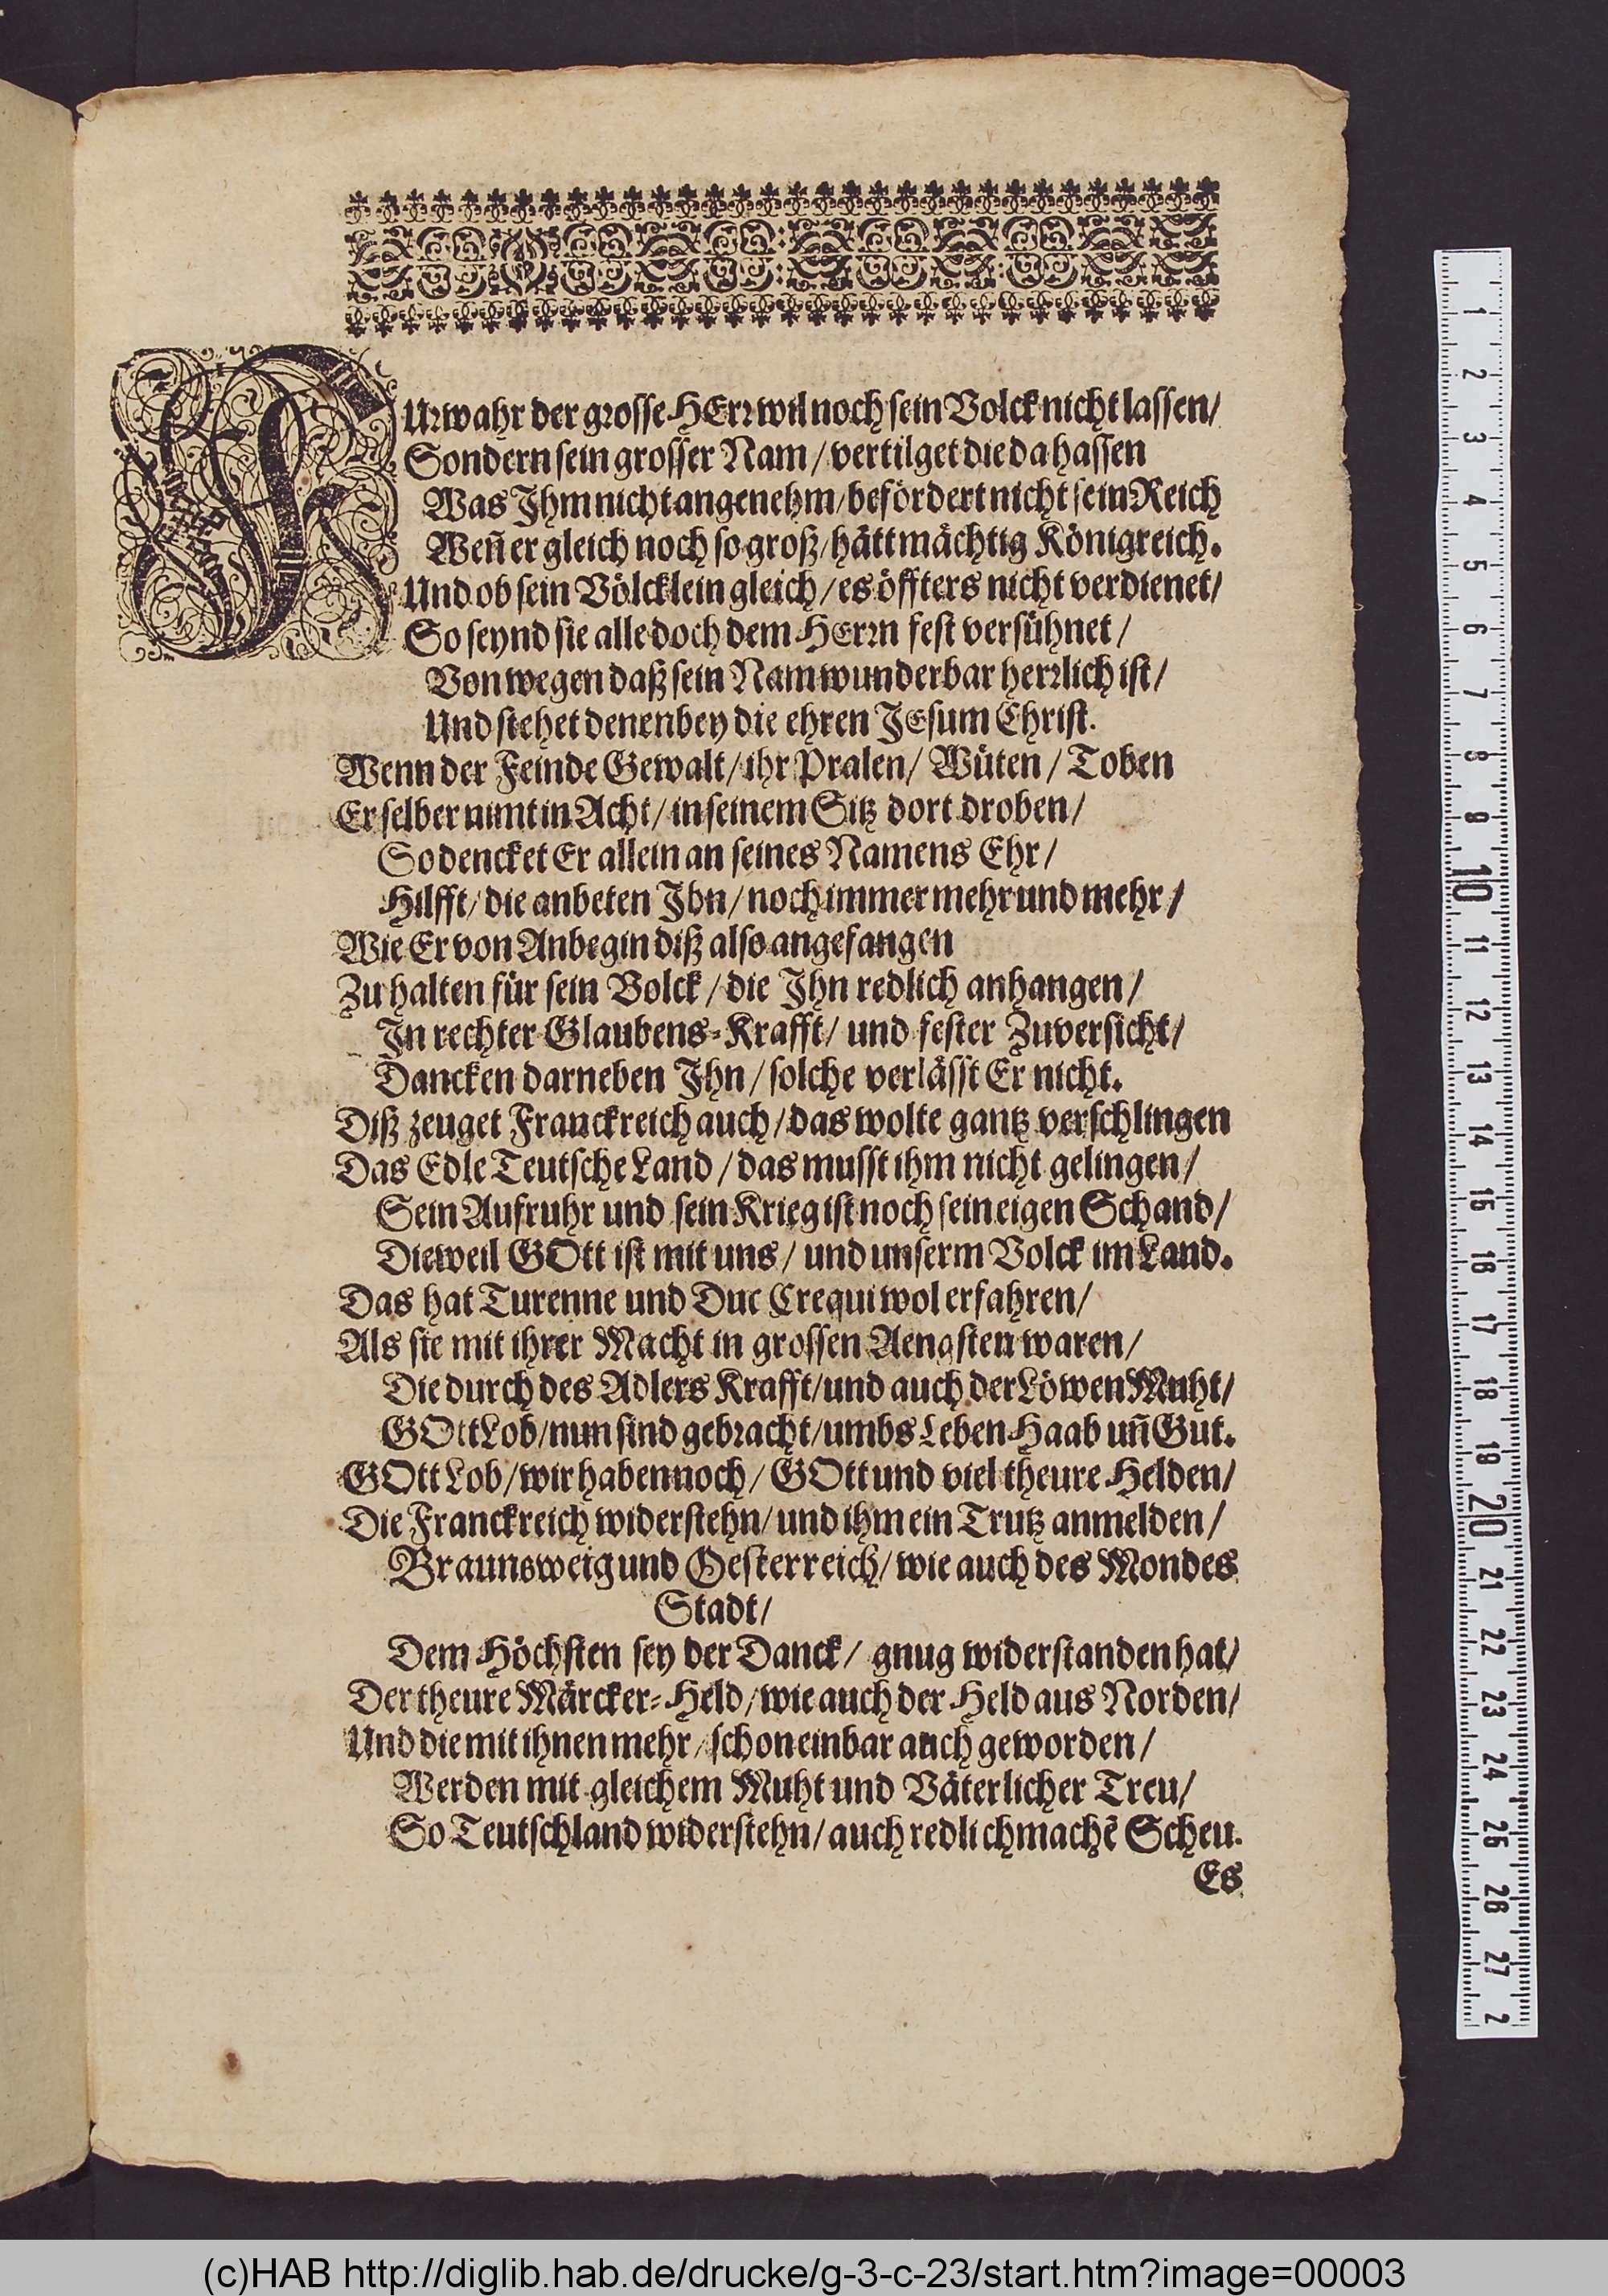 FUrwahr der grosse HErr wil noch sein Volck nicht lassen/
Sondern sein grosser Nam/ vertilget die da hassen
Was Ihm nicht angenehm/ befördert nicht sein Reich
Weñ er gleich noch so groß/ hätt mächtig Königreich.
Und ob sein Völcklein gleich/ es öffters nicht verdienet/
So seynd sie alle doch dem HErrn fest versühnet/
Von wegen daß sein Nam wunderbar herrlich ist/
Und stehet denen bey die ehren JEsum Christ.
Wenn der Feinde Gewalt/ ihr Pralen/ Wüten/ Toben
Er selber nimt in Acht/ in seinem Sitz dort droben/
So dencket Er allein an seines Namens Ehr/
Hilfft/ die anbeten Ihn/ noch immer mehr und mehr/
Wie Er von Anbegin diß also angefangen
Zu halten für sein Volck/ die Ihn redlich anhangen/
In rechter Glaubens-Krafft/ und fester Zuversicht/
Dancken darneben Ihn/ solche verlässt Er nicht.
Diß zeuget Franckreich auch/ das wolte gantz verschlingen
Das Edle Teutsche Land/ das musst ihm nicht gelingen/
Sein Aufruhr und sein Krieg ist noch sein eigen Schand/
Dieweil GOtt ist mit uns/ und unserm Volck im Land.
Das hat Turenne und Duc Crequi wol erfahren/
Als sie mit ihrer Macht in grossen Aengsten waren/
Die durch des Adlers Krafft/ und auch der Löwen Muht/
GOtt Lob/ nun sind gebracht/ umbs Leben Haab uñ Gut.
GOtt Lob/ wir haben noch/ GOtt und viel theure Helden/
Die Franckreich widerstehn/ und ihm ein Trutz anmelden/
Braunsweig und Oesterreich/ wie auch des Mondes
Stadt/
Dem Höchsten sey der Danck/ gnug widerstanden hat/
Der theure Märcker-Held/ wie auch der Held aus Norden/
Und die mit ihnen mehr/ schon einbar auch geworden/
Werden mit gleichem Muht und Väterlicher Treu/
So Teutschland widerstehn/ auch redlich machẽ Scheu.
Es
1
2
3
4
5
6
7
8
9
10
11
12
13
14
15
16
17
18
19
20
21
22
23
24
25
26
27
2
(c)HAB http://diglib.hab.de/drucke/g-3-c-23/start.htm?image=00003